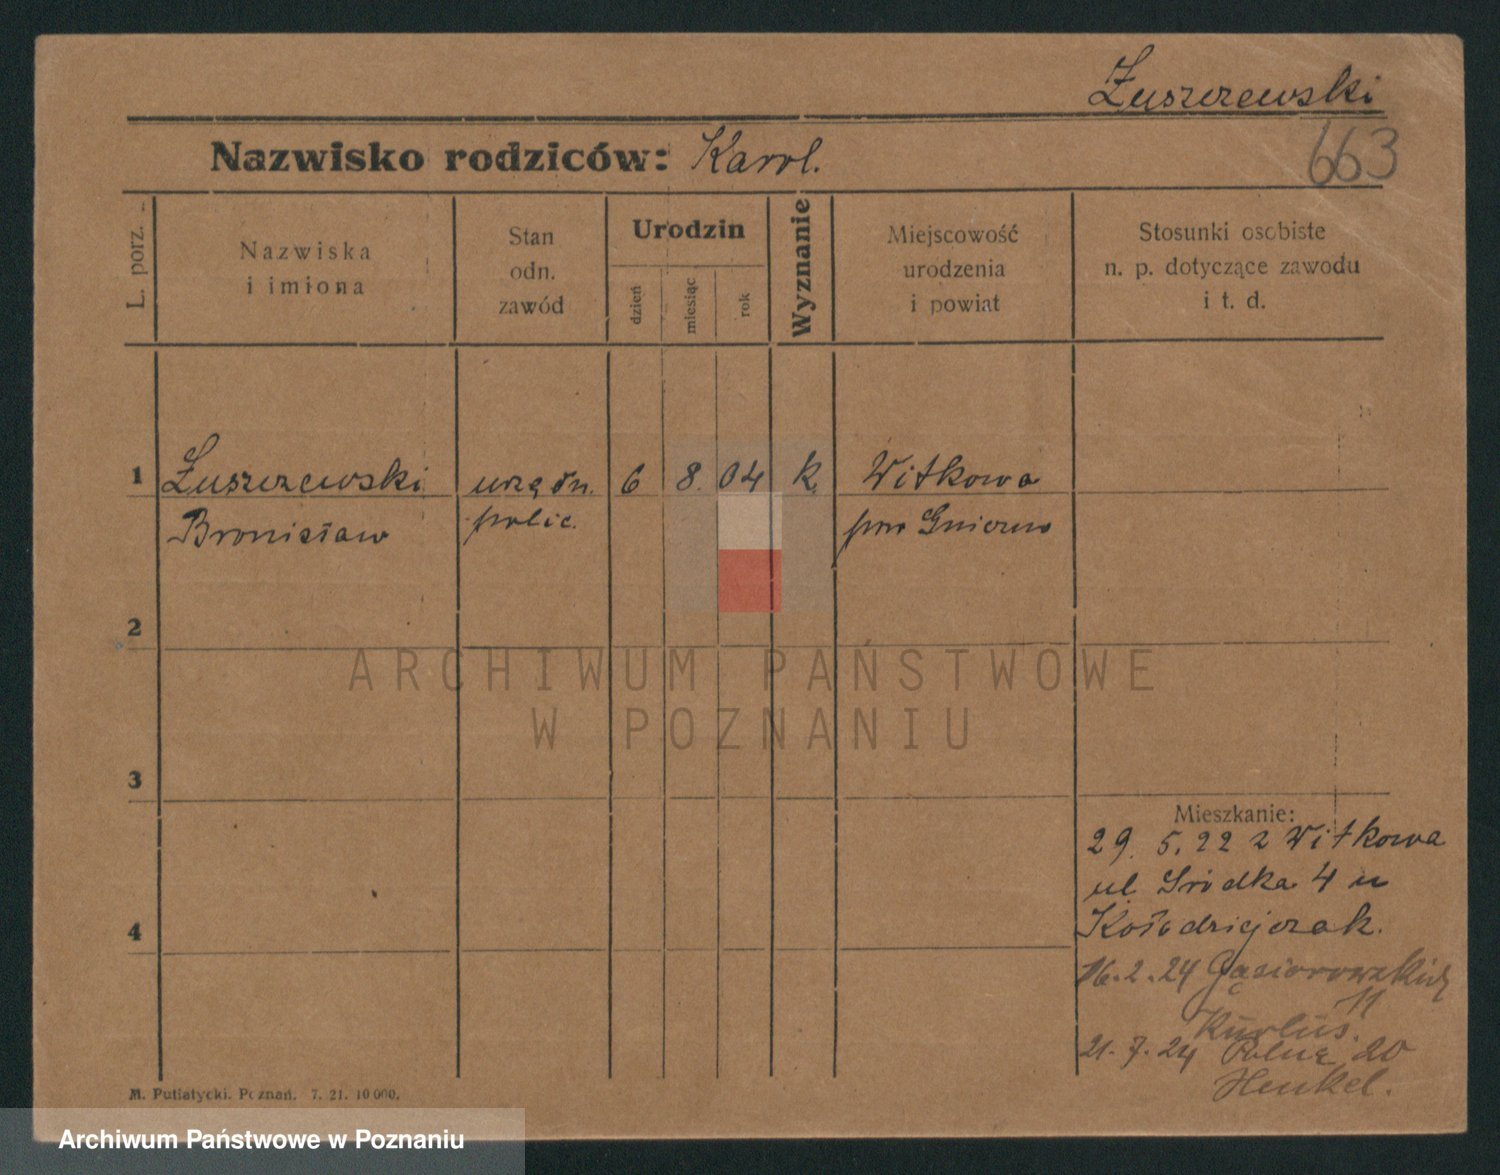 Żuszczewski
663
Nazwisko rodziców: Karol.
L. porz.
Nazwiska
i imiona
Stan
odn.
zawód
Urodzin
dzień
miesiąc
rok
Wyznanie
Miejscowość
urodzenia
i powiat
Stosunki osobiste
n. p. dotyczące zawodu
i t. d.
1
Żuszczewski
Bronisław
urzędn.
polic.
6 8. 04
k.
Witkowa
pow Gniezno
2
3
4
Mieszkanie:
29. 5. 22 z Witkowa
ul Śródka 4 u
Kołodziejczak.
16.2.24 Gąsiorowskich
11
Kurlus.
21.7.24 Polna 20
Henkel.
M. Putiatycki. Poznań. 7. 21. 10 000.
ARCHIWUM PAŃSTWOWE
W POZNANIU
Archiwum Państwowe w Poznaniu